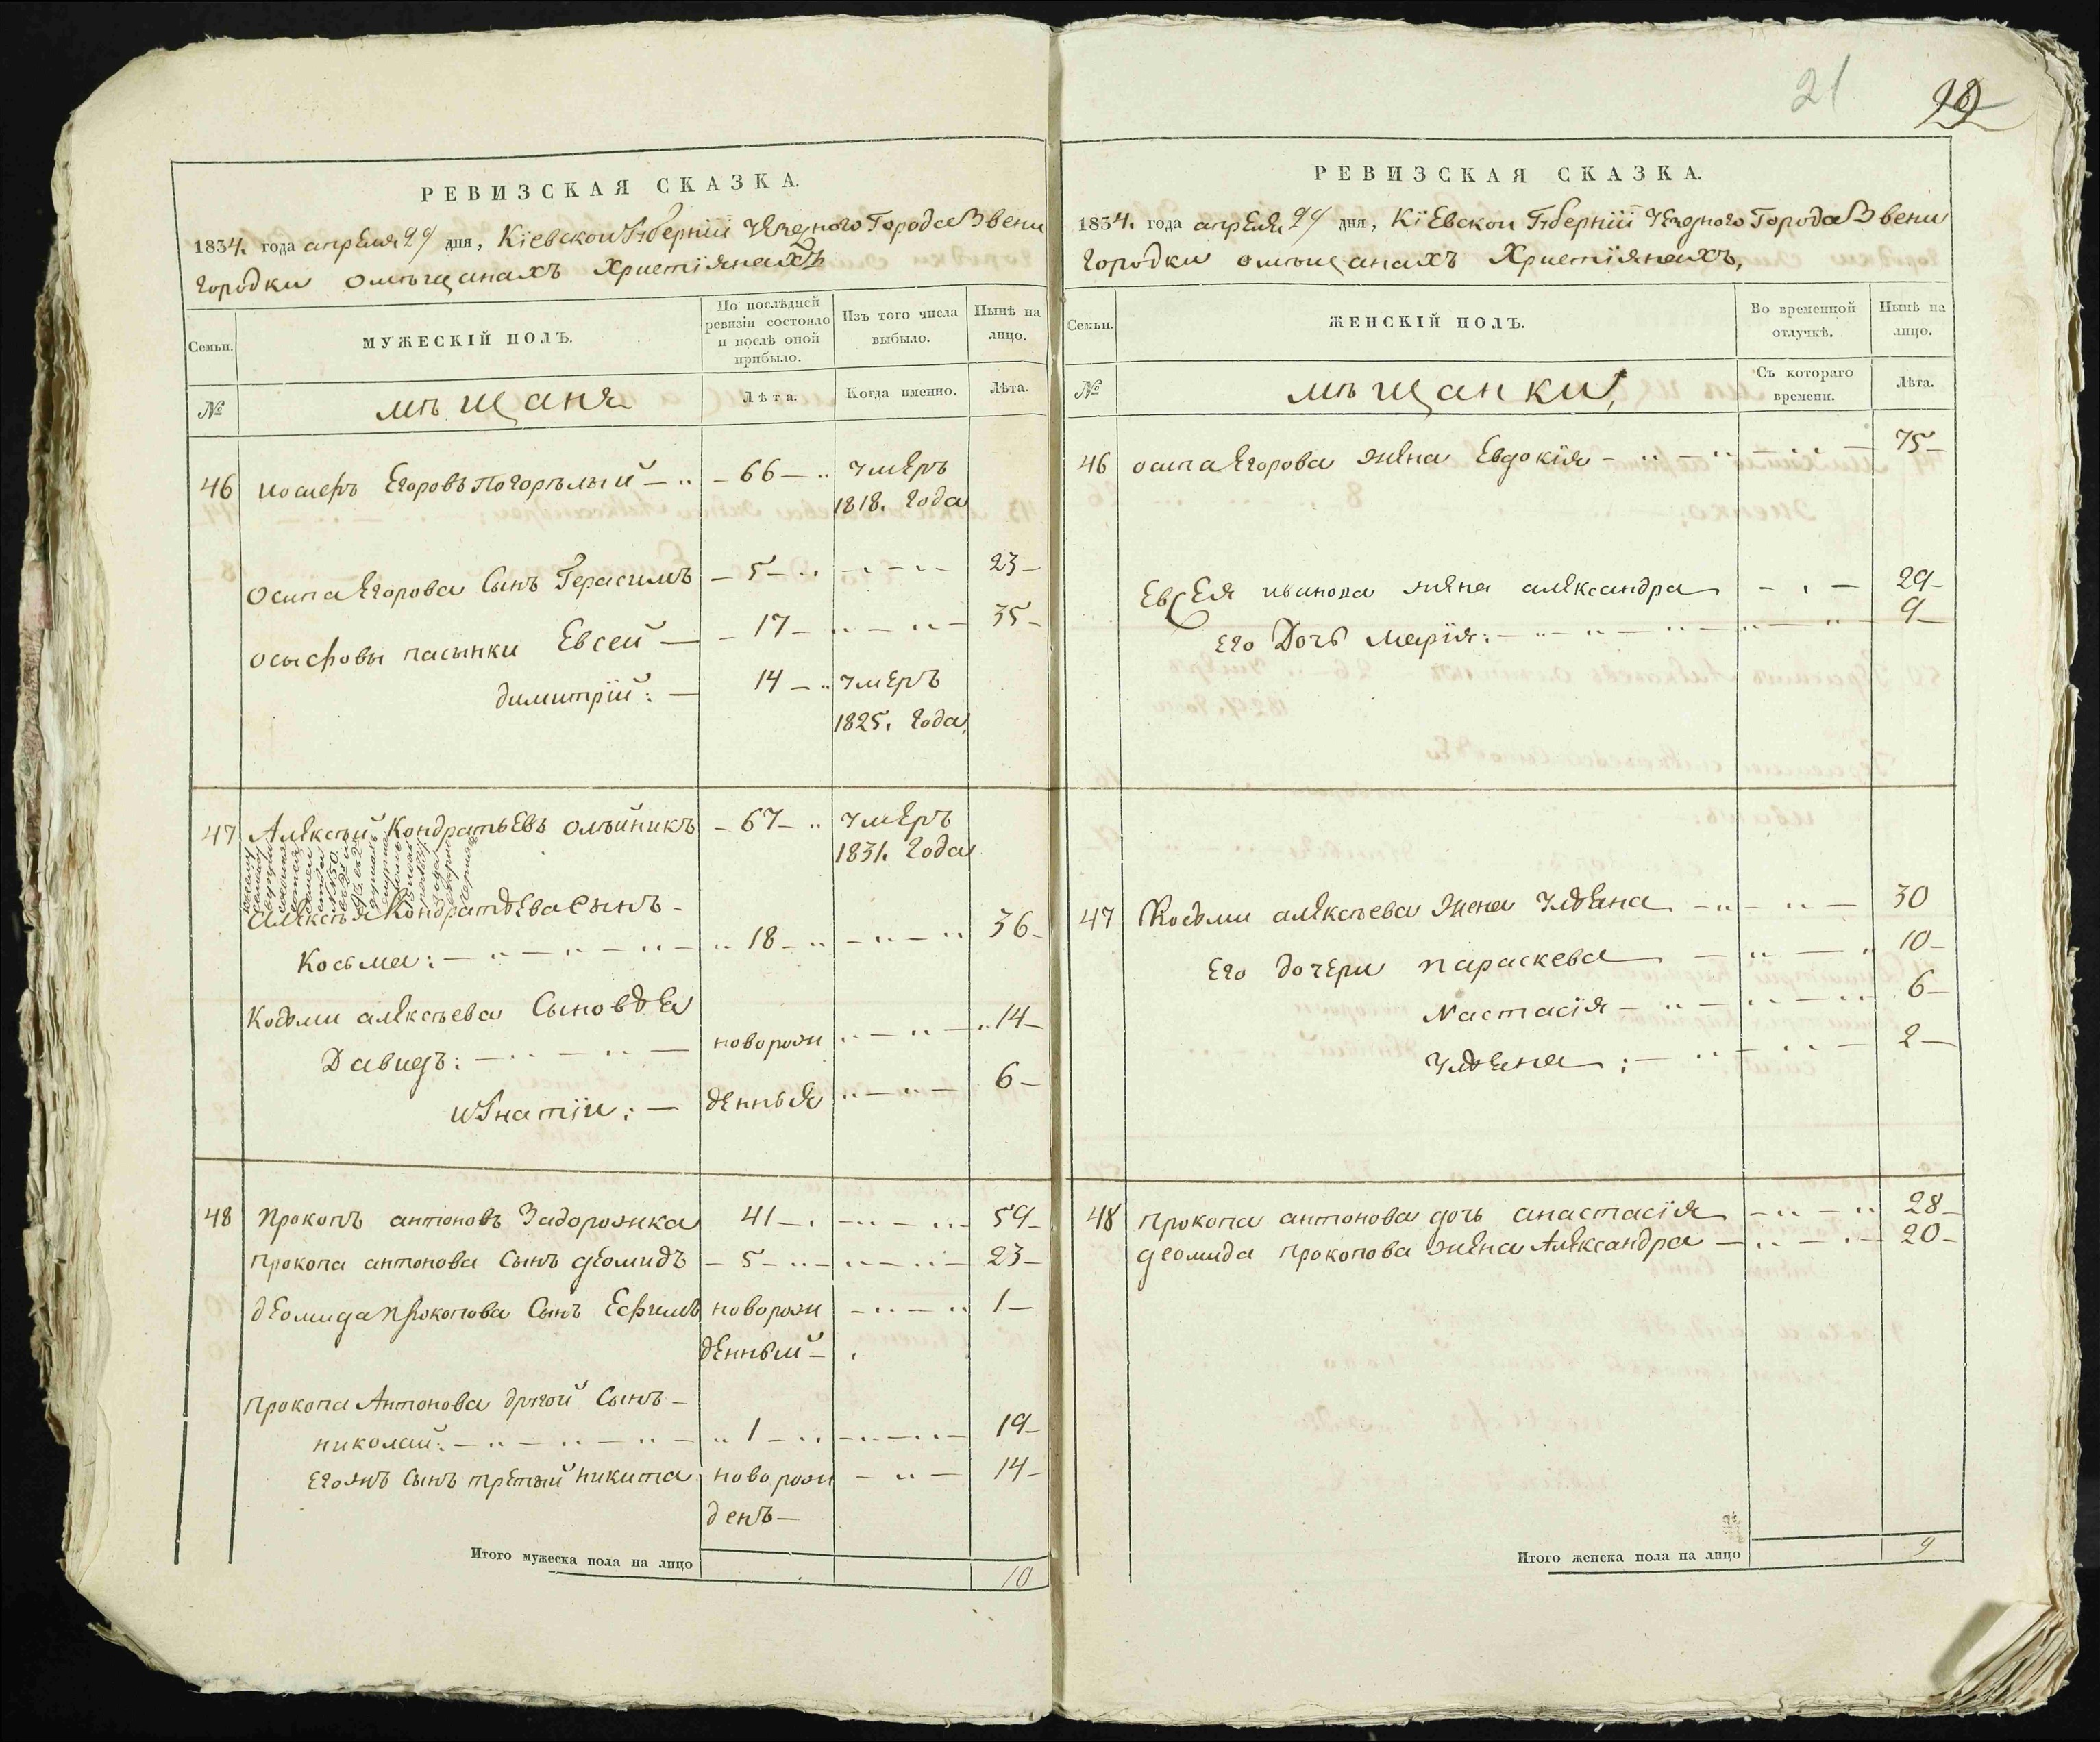 21
РЕВИЗСКАЯ СКАЗКА.
1834. года апреля 29 дня, Кіевской Губерніи Уезднаго Города Звени
городки о мѣщанахъ Христіянахъ
Семьи.
МУЖЕСКІЙ ПОЛЪ.
По послѣдней ревизіи состояло и послѣ оной прибыло.
Изъ того числа выбыло.
Нынѣ на лицо.
№
мѣщаня
Лѣта.
Когда именно.
Лѣта.
46 Иосифъ Егоровъ Погорѣлый — 66 — умеръ
1818. года
Осипа Егорова Сынъ Герасимъ — 5 — 23 —
Осыфовы пасынки Евсей — 17 — 35 —
димитрій: — 14 — умеръ
1825. года
47 Алексѣй Кондратьевъ олѣйникъ — 67 — умеръ
1831. года
Алексѣя Кондратьева сынъ —
Косьма: — 18 — 36 —
Козьми алексѣева Сыновья
Давидъ: — новорож — 14 —
Игнатіи: — денныя — 6 —
48 Прокопъ антоновъ Задорожка 41 — 59 —
прокопа антонова Сынъ деомидъ — 5 — 23 —
деомида прокопова Сынъ Ефимъ новорож — 1 —
денный —
прокопа Антонова другой Сынъ —
николай: — 1 — 19 —
Егожъ Сынъ третый никита новорож — 14 —
денъ —
Итого мужеска пола на лицо 10
РЕВИЗСКАЯ СКАЗКА.
1834. года апреля 29 дня, Кіевской Губерніи Уезднаго Города Звени
городки о мѣщанахъ Христіянахъ,
Семьи.
ЖЕНСКІЙ ПОЛЪ.
Во временной отлучкѣ.
Нынѣ на лицо.
№
мѣщанки,
Съ котораго времени.
Лѣта.
46 осипа Егорова жена Евдокія — 75 —
Евсея иванова жена александра — 29 —
Его Дочь Марія: — 9 —
47 Козьми алексѣева жена Ульяна — 30
Его дочери параскева — 10 —
Настасія — 6 —
Ульяна: — 2 —
48 прокопа антонова дочь анастасія — 28 —
деомида прокопова жена Александра — 20 —
Итого женска пола на лицо 9